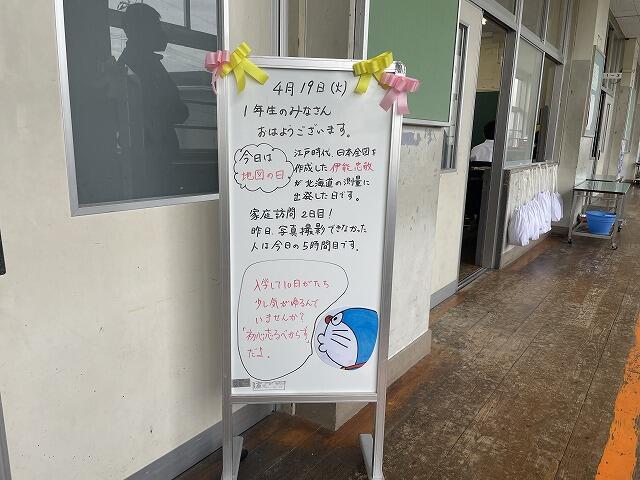 4月19日(火)
1年生のみなさん
おはようございます。
今日は
地図の日
江戸時代、日本全図を
作成した伊能忠敬
が北海道の測量に
出発した日です。
家庭訪問2日目!
昨日、写真撮影できなかった
人は今日の5時間目です。
入学して10日がたち
少し気がゆるんで
いませんか?
「初心忘るべからず」
だよ。